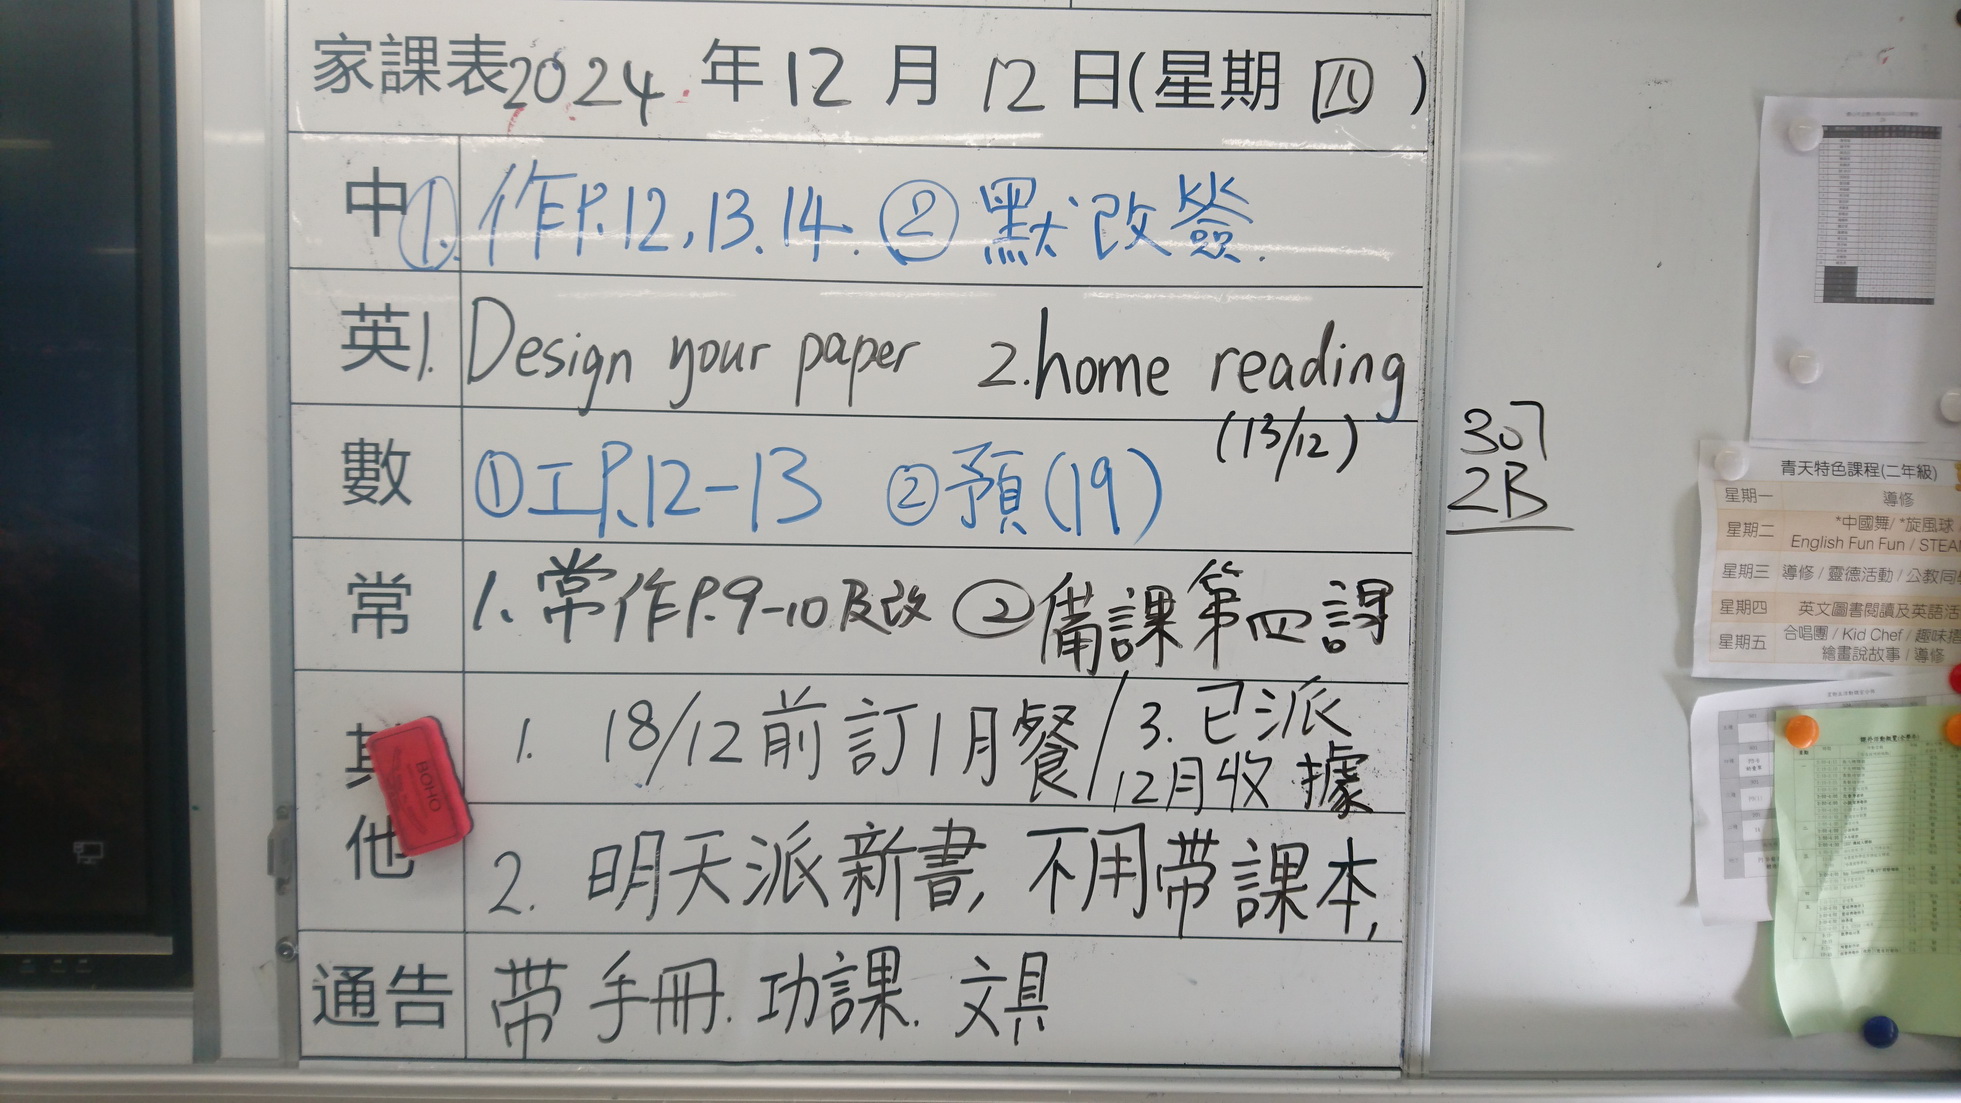 家課表 2024 年 12 月 12 日(星期 四 )
中 ①. 作P.12,13.14. ② 默改簽.
英 1. Design your paper 2. home reading
(13/12)
數 ①工P.12-13 ②預(19)
常 1. 常作P.9-10及改 ②備課第四課
其他 1. 18/12前訂1月餐/ 3. 已派
12月收據
2. 明天派新書, 不用带課本,
通告 带手冊. 功課. 文具
307
2B
BOHO
青天特色課程(二年級)
星期一 導修
星期二 *中國舞/ *旋風球
English Fun Fun / STEA
星期三 導修 / 靈德活動 / 公教同
星期四 英文圖書閱讀及英語活
星期五 合唱團 / Kid Chef / 趣味
繪畫說故事 / 導修